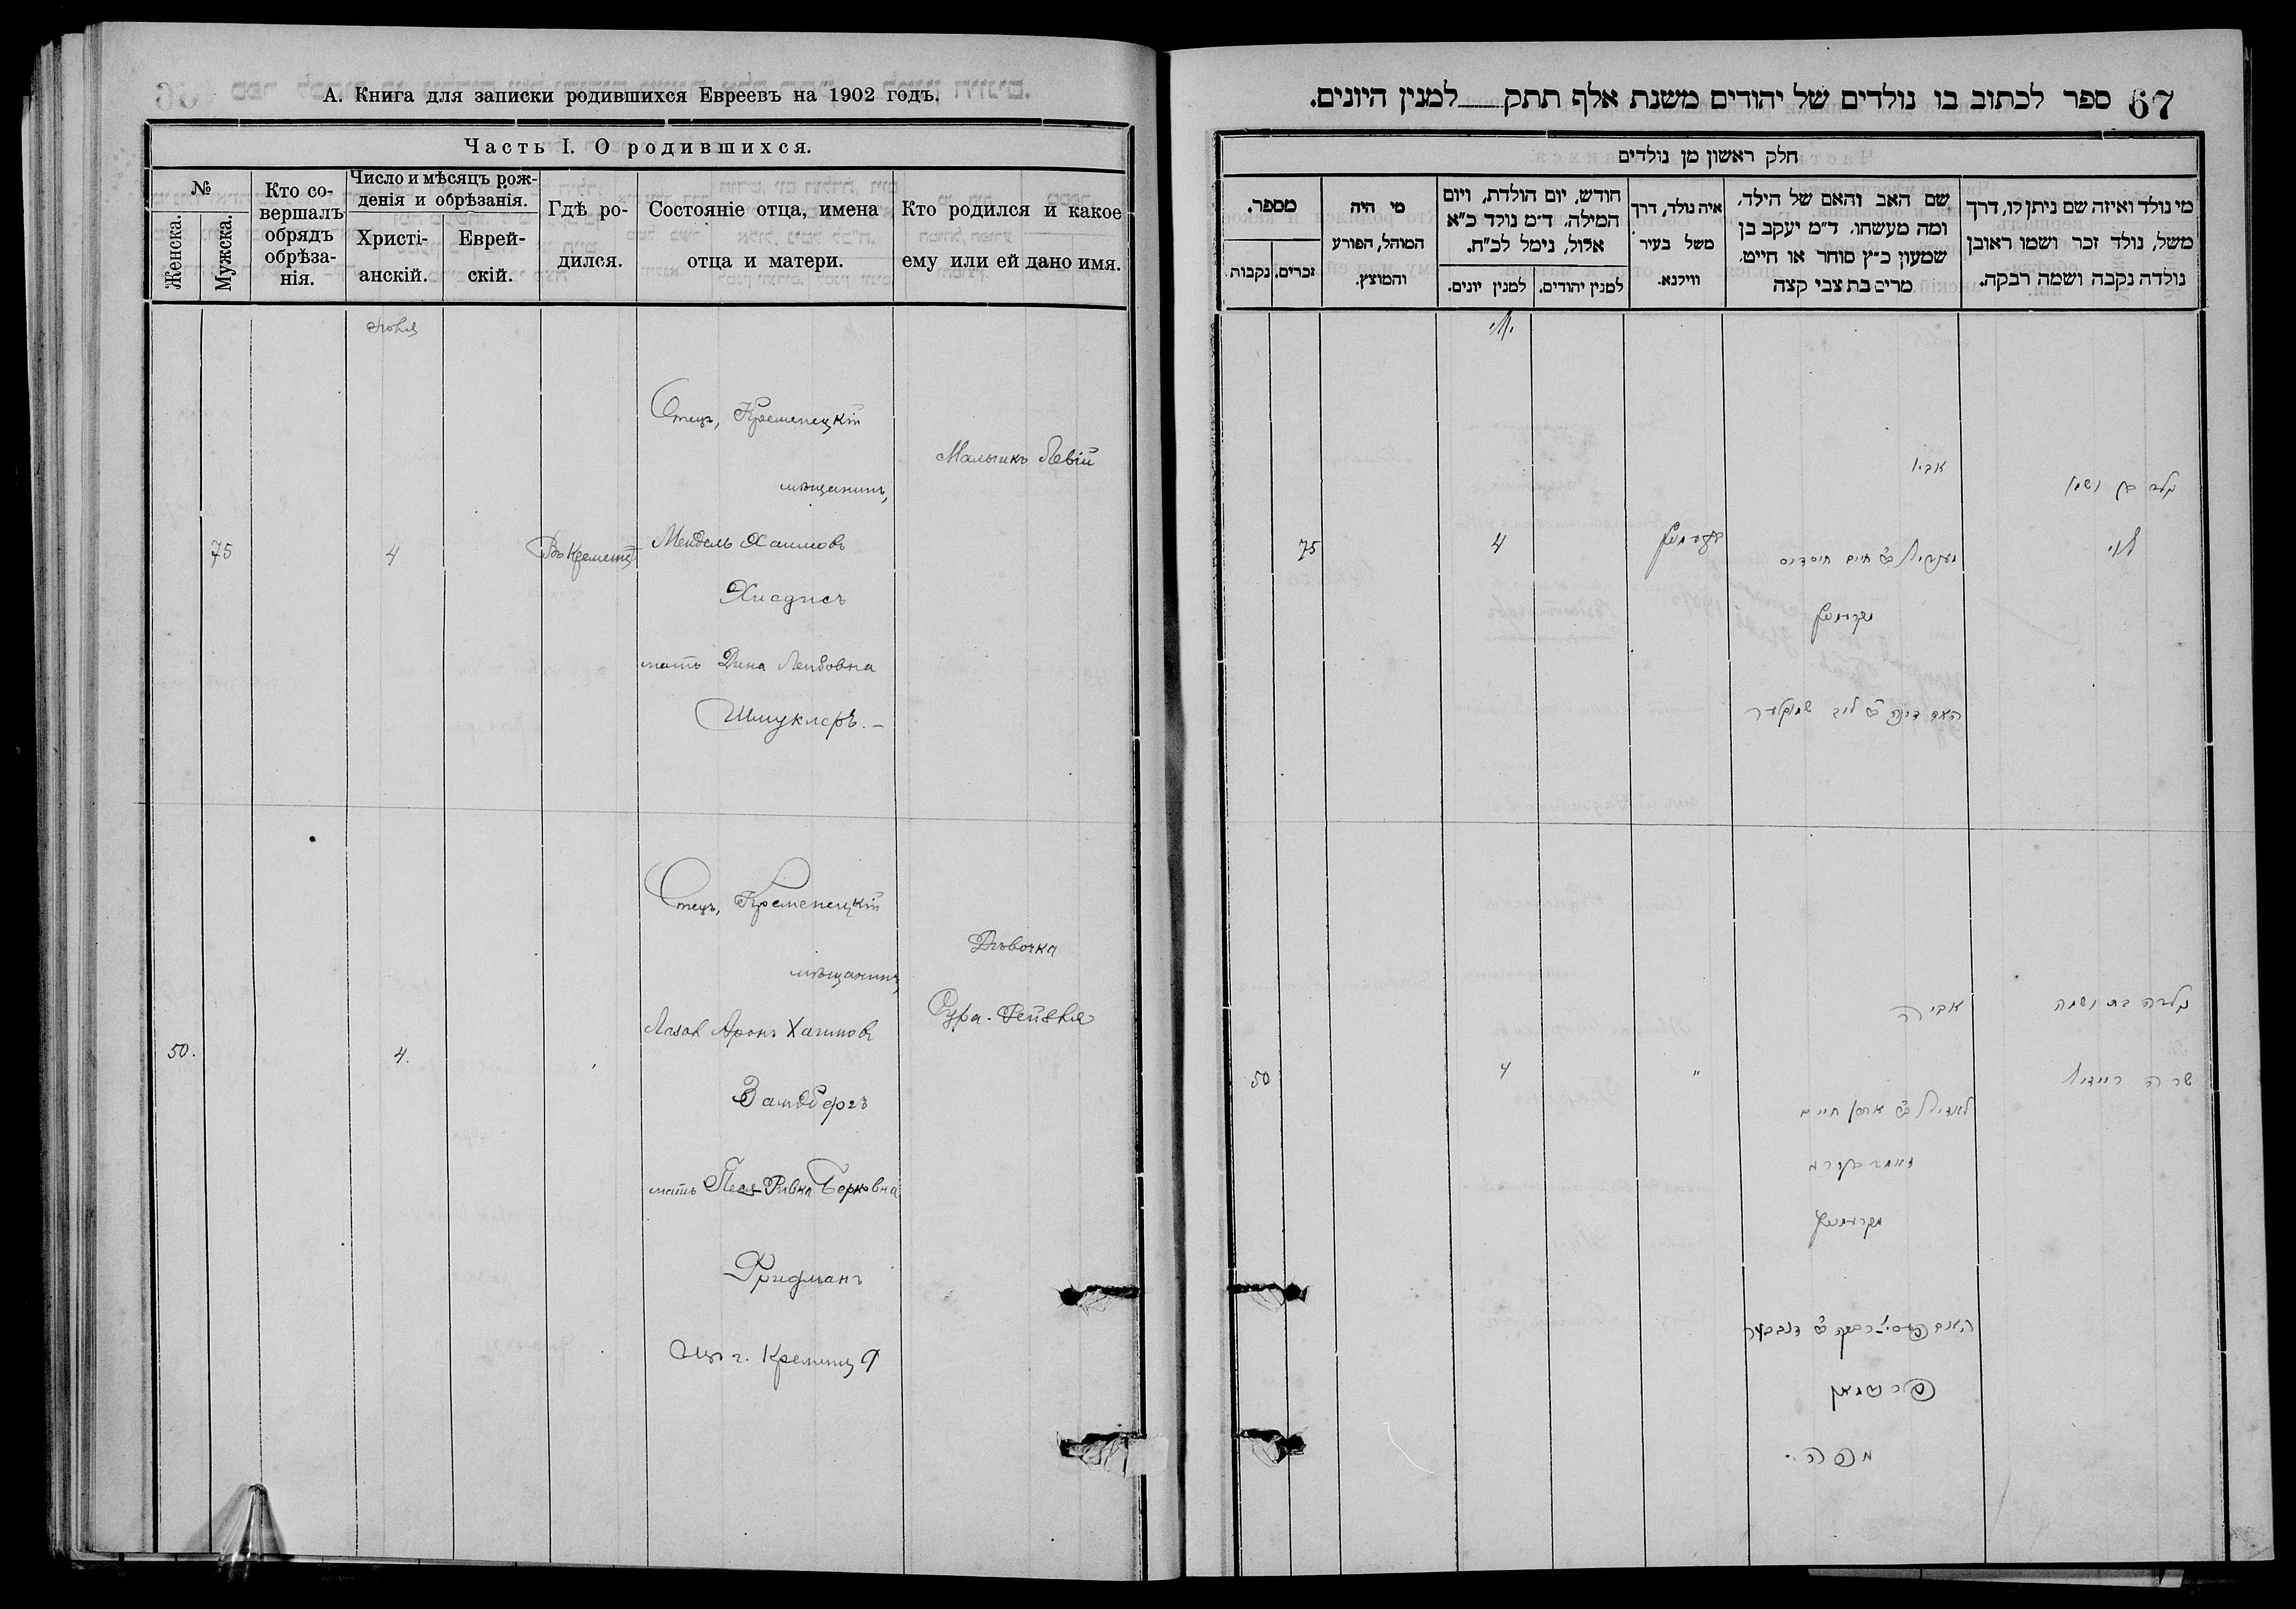 А. Книга для записки родившихся Евреевъ на 1902 годъ.
Часть I. О родившихся.
№
Женска.
Мужска.
Кто со-
вершалъ
обрядъ
обрѣза-
нія.
Число и мѣсяцъ рож-
денія и обрѣзанія.
Христі-
анскій.
Еврей-
скій.
Гдѣ ро-
дился.
Состояніе отца, имена
отца и матери.
Кто родился и какое
ему или ей дано имя.
75
4
Въ Кременцѣ
Отецъ, Кременецкій
мѣщанинъ,
Мендель Хаимовъ
Хисдисъ
мать Дина Лейбовна
Шмуклеръ. –
Мальчикъ Левій
50.
4.
Отецъ, Кременецкій
мѣщанинъ,
Аронъ Хаимовъ
Замдбергъ
мать Песя-Ривка Берковна
Фридманъ
г. Кременц
Дѣвочка
Сура-
67
ספר לכתוב בו נולדים של יהודים משנת אלף תתק למנין היונים.
חלק ראשון מן נולדים
מי נולד ואיזה שם ניתן לו, דרך
משל, נולד זכר ושמו ראובן
נולדה נקבה ושמה רבקה.
שם האב והאם של הילד,
ומה מעשהו. ד"מ יעקב בן
שמעון כ"ץ סוחר או חייט,
מרים בת צבי קצה
איה נולד, דרך
משל בעיר
ווילנא.
חודש, יום הולדת, ויום
המילה. ד"מ נולד כ"א
אלול, נימל לכ"ח.
למנין יהודים.
למנין יונים.
מי היה
המוהל, הפורע
והמוצץ.
מספר.
זכרים.
נקבות.
נולד בן ושמו
לוי
אביו
חיים חיסדיס
מקרעמניץ
האם דינה לייב שמוקלער
בקרעמניץ
4
75
נולדה בת ושמה
שרה
אביה
אהרן חיים
זאמדבערג
מקרעמניץ
רבקה
פרידמאן
מפה.
"
4
50